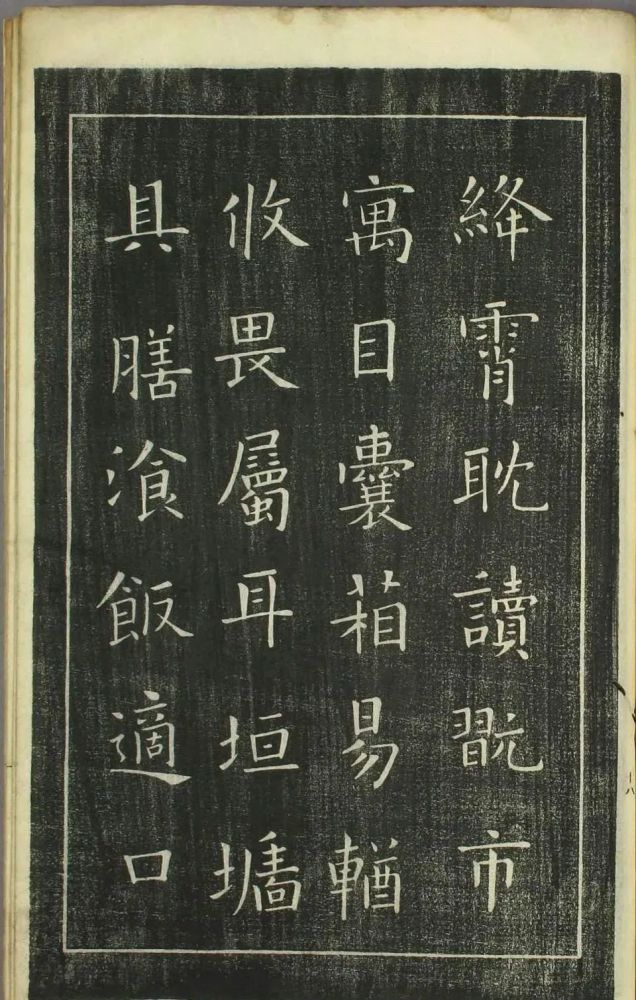 絳霄耽讀翫市
寓目囊葙易輶
攸畏屬耳垣墻
具膳湌飯適口
十八